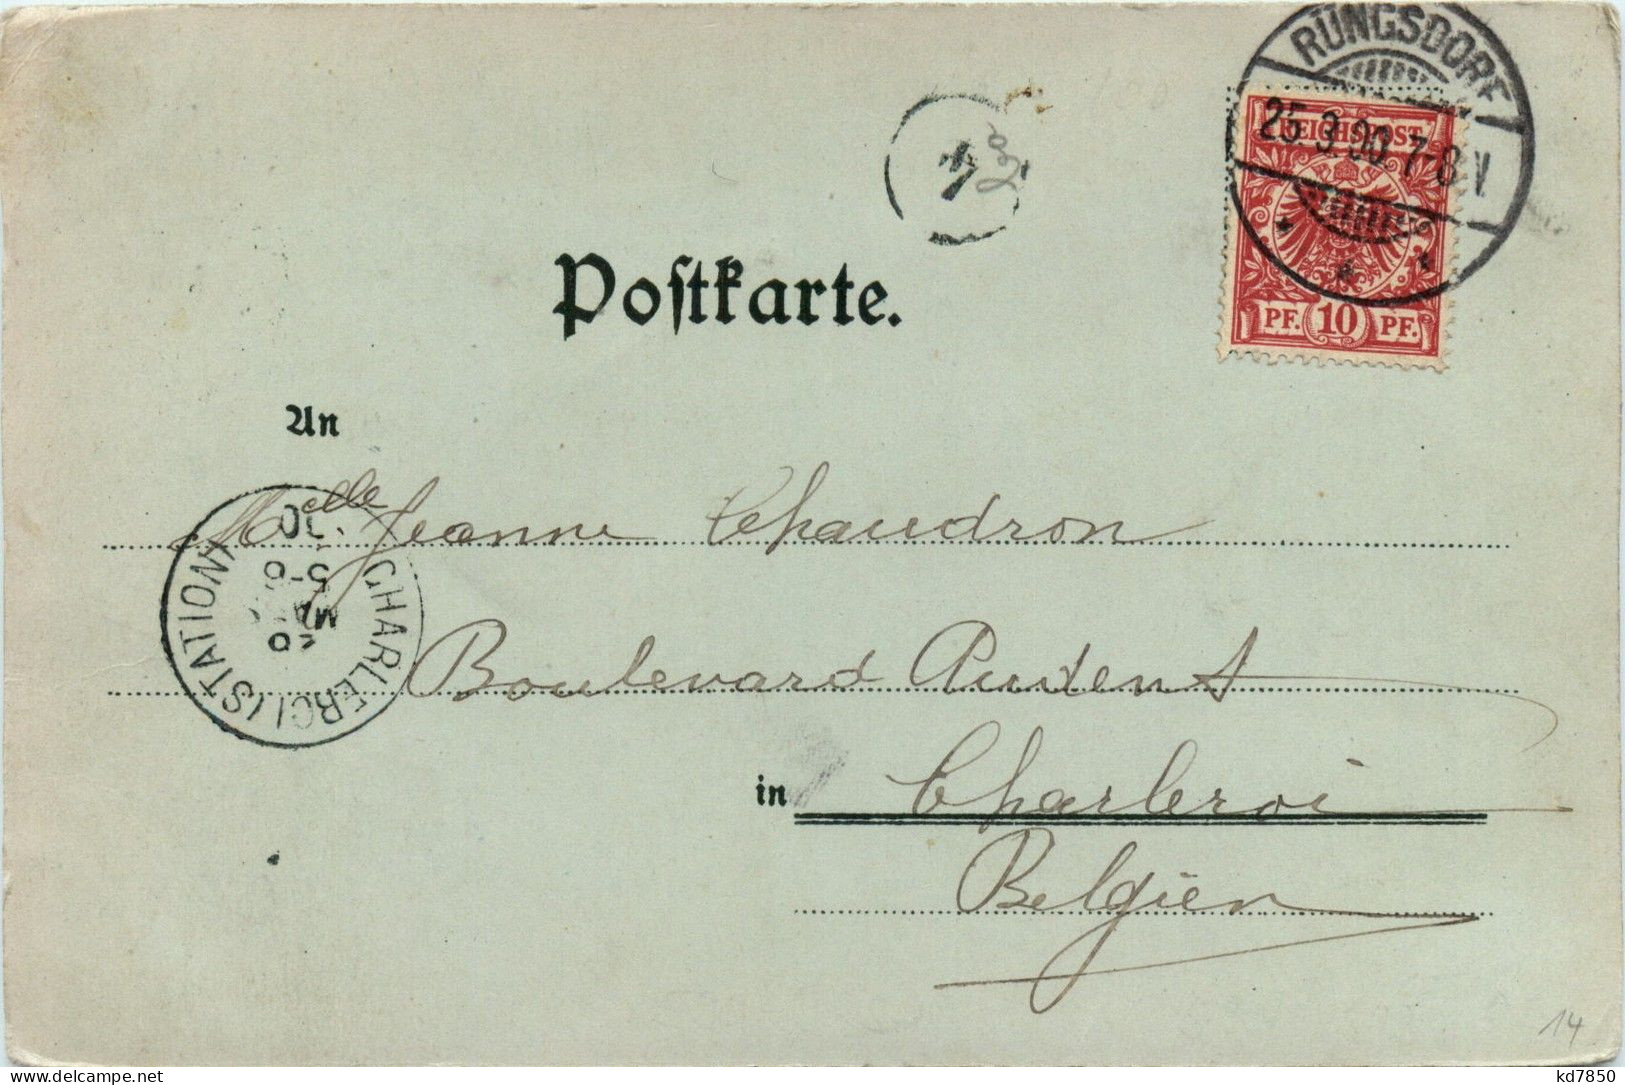 RÜNGSDORF
25.3.00.7-8V
REICHSPOST
PF. 10 PF.
4
Postkarte.
An
Melle Jeanne Chaudron
CHARLEROI (STATION)
5-6
Boulevard Audent
in Charleroi
Belgien
14
kd7850